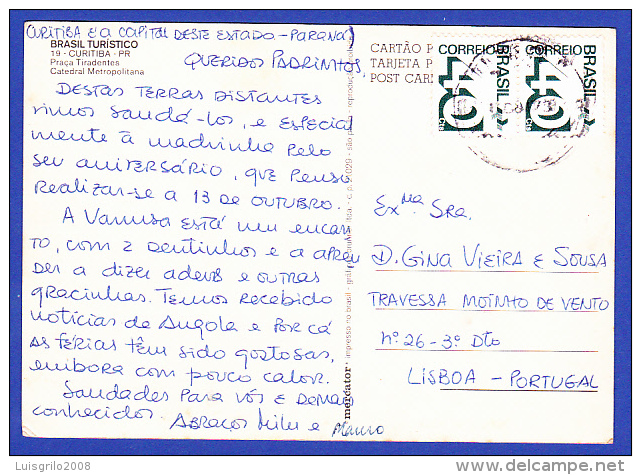 (CURITIBA E'A CAPITAL DESTE ESTADO - PARANÁ)
BRASIL TURÍSTICO
19 - CURITIBA - PR
Praça Tiradentes
Catedral Metropolitana
QUERIDOS PADRINHOS,
DESTAS TERRAS DISTANTES
vimos saudá-los, e ESPECIAL
MENTE À madrinha pelo
seu aniversário, que penso
Realizar-se a 13 DE OUTUBRO.
A Vanusa ESTÁ um encan
TO, com 2 dentinhos e a apren
der a dizer adeus e outras
gracinhas. Temos recebido
notícias de Angola e por cá
AS férias têm sido gostosas,
embora com pouco calor.
Saudades para vós e demais
conhecidos. ABRAÇOS Milu e Mauro
CARTÃO P
TARJETA P
POST CAR
CORREIO
BRASIL
40
CORREIO
BRASIL
40
mercator
impresso no brasil
Exma Sra.
D. GINA VIEIRA E SOUSA
TRAVESSA MOINHO DE VENTO
nº 26 - 3º Dto
LISBOA - PORTUGAL
Luisgrilo2008
delcampe.net